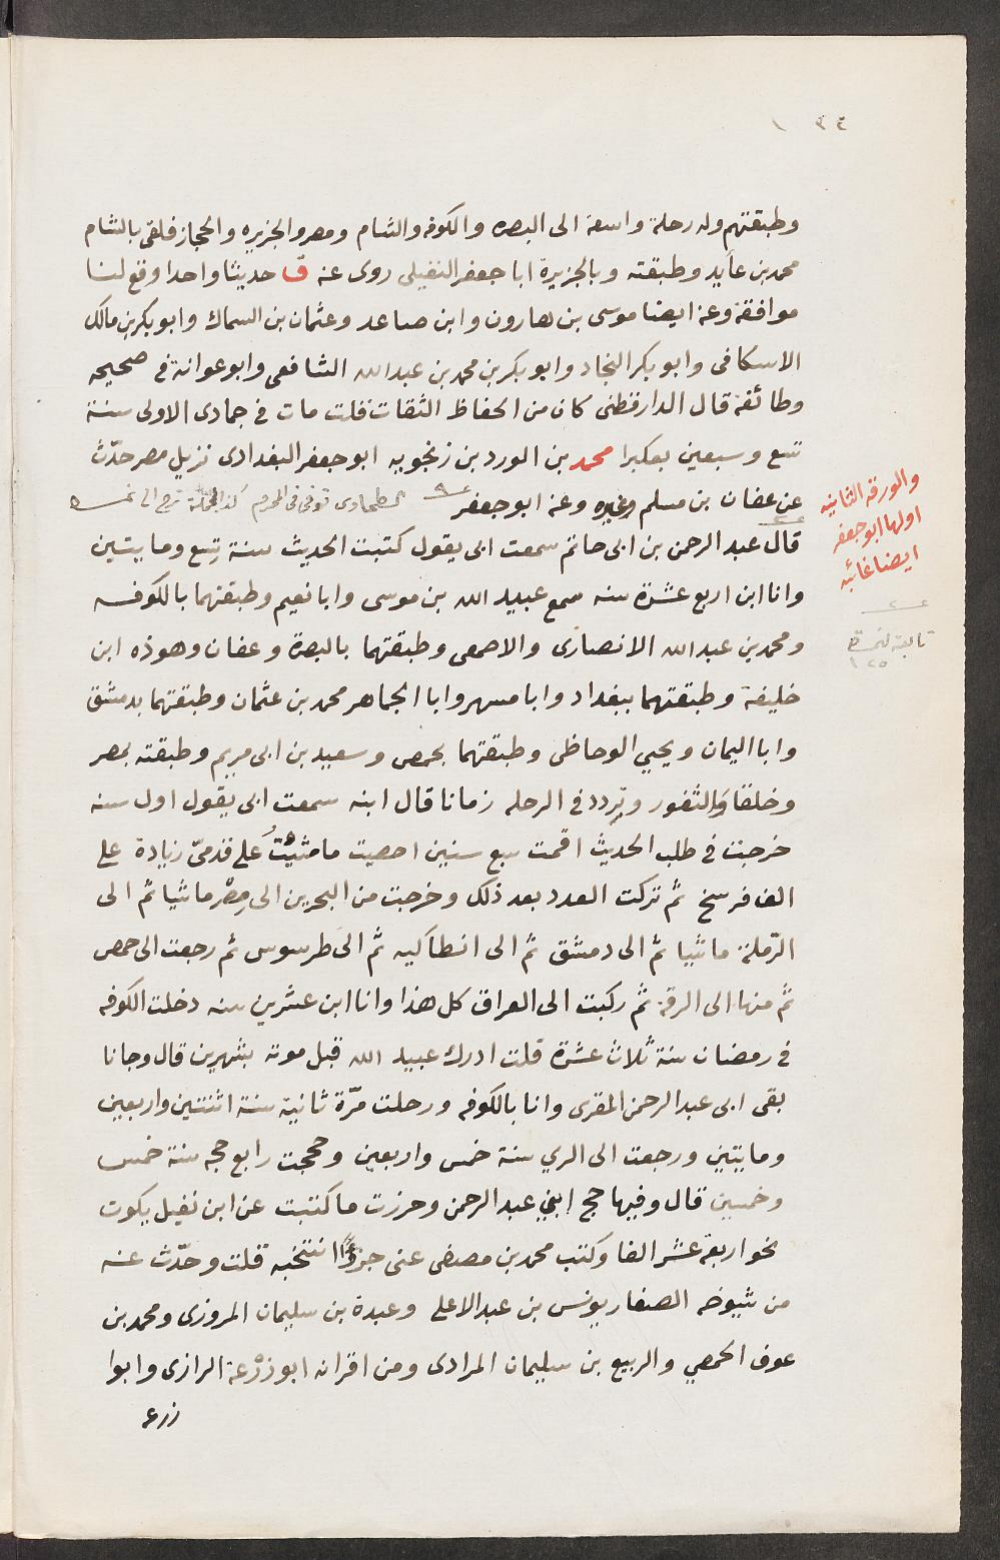 وطبقتهم وله رحلة واسعة الى البصره والكوفه والشام ومصر والجزيره والحجاز فلقى بالشام
محمد بن عايد وطبقته وبالجزيرة ابا جعفر النفيلى روى عنه ق حديثا واحدا وقع لنا
موافقة وعنه ايضا موسى بن هارون وابن صاعد وعثمان بن السماك وابو بكر بن مالك
الاسكافى وابو بكر النجاد وابو بكر بن محمد بن عبد الله الشافعى وابو عوانة فى صحيحه
وطائفة قال الدارقطنى كان من الحفاظ الثقات قلت مات فى جمادى الاولى سنة
تسع وسبعين بعكبرا محمد بن الورد بن زنجويه ابو جعفر البغدادى نزيل مصر حدّث
عن عفان بن مسلم وغيره وعنه ابو جعفر الطحاوى توفى فى المحرم
والورقه الثانيه
اولها ابو جعفر
ايضا غائبه
قال عبد الرحمن بن ابى حاتم سمعت ابى يقول كتبت الحديث سنة تِسع ومايتين
وانا ابن اربع عشرة سنه سمع عبيد الله بن موسى وابا نعيم وطبقتهما بالكوفه
ومحمد بن عبد الله الانصارى والاصمعى وطبقتهما بالبصرة وعفان وهوذه ابن
خليفة وطبقتهما ببغداد وابا مسهر وابا الجماهر محمد بن عثمان وطبقتهما بدمشق
وابا اليمان ويحيي الوحاظى وطبقتهما بحمص وسعيد بن ابى مريم وطبقته بمصر
وخلقا بالثغور وتردد فى الرحله زمانا قال ابنه سمعت ابى يقول اول سنه
خرجت فى طلب الحديث اقمت سبع سنين احصيت ما مشيت على قدمىّ زيادة على
الف فرسخ ثم تركت العدد بعد ذلك وخرجت من البحرين الى مِصْر ماشيا ثم الى
الرّملة ماشيا ثم الى دمشق ثم الى انطاكيه ثم الى طرسوس ثم رجعت الى حمص
ثم منها الى الرقة ثم ركبت الى العراق كل هذا وانا ابن عشرين سنه دخلت الكوفه
فى رمضان سنة ثلاث عشرة قلت ادرك عبيد الله قبل موته بشهرين قال وجانا
بقى ابى عبد الرحمن المقرى وانا بالكوفه ورحلت مرّة ثانية سنة اثنتين واربعين
ومايتين ورجعت الى الري سنة خمس واربعين وحججت رابع حجه سنة خمس
وخمسين قال وفيها حج ابني عبد الرحمن وحرزت ما كتبت عن ابن نفيل يكون
نحو اربعة عشر الفا وكتب محمد بن مصفى عنى جزءًا انتخبه قلت وحدّث عنه
من شيوخه الصفار يونس بن عبد الاعلى وعبدة بن سليمان المروزى ومحمد بن
عوف الحمصي والربيع بن سليمان المرادى ومن اقرانه ابو زرْعة الرازى وابوا
زرعه